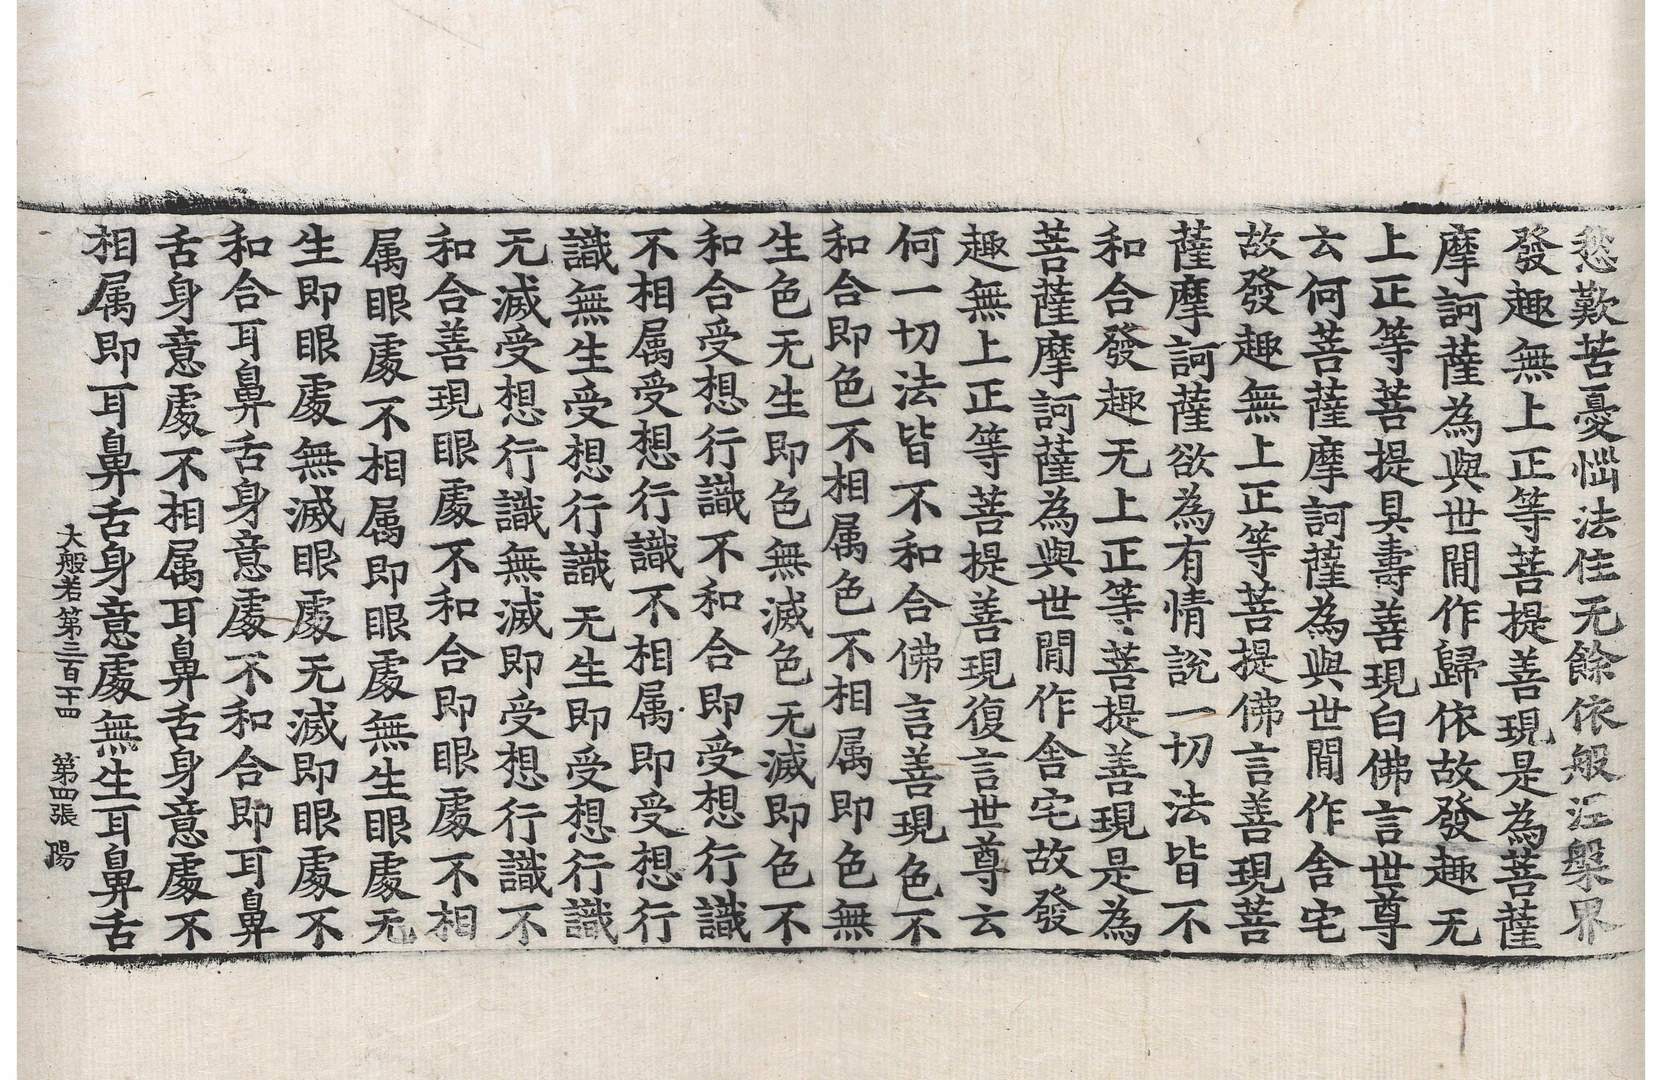 愁歎苦憂惱法住无餘依般涅槃界
發趣無上正等菩提善現是為菩薩
摩訶薩為與世間作歸依故發趣无
上正等菩提具壽善現白佛言世尊
云何菩薩摩訶薩為與世間作舍宅
故發趣無上正等菩提佛言善現菩
薩摩訶薩欲為有情說一切法皆不
和合發趣无上正等菩提善現是為
菩薩摩訶薩為與世間作舍宅故發
趣無上正等菩提善現復言世尊云
何一切法皆不和合佛言善現色不
和合即色不相属色不相属即色無
生色无生即色無滅色无滅即色不
和合受想行識不和合即受想行識
不相属受想行識不相属即受想行
識無生受想行識无生即受想行識
无滅受想行識無滅即受想行識不
和合善現眼處不和合即眼處不相
属眼處不相属即眼處無生眼處无
生即眼處無滅眼處无滅即眼處不
和合耳鼻舌身意處不和合即耳鼻
舌身意處不相属耳鼻舌身意處不
相属即耳鼻舌身意處無生耳鼻舌
大般若第三百十四 第四張 陽